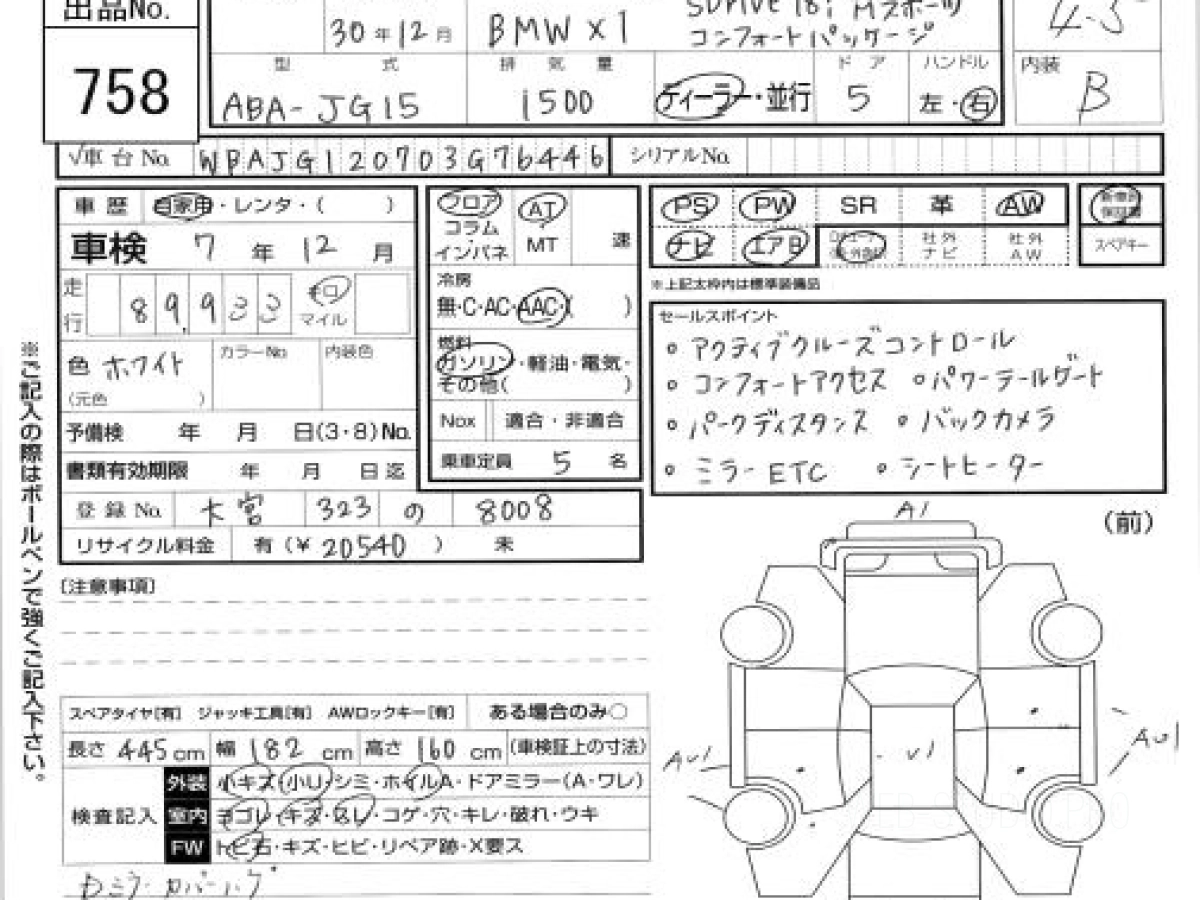 出品No.
758
30年12月 BMW X1 SDrive 18i Mスポーツ
コンフォートパッケージ
4.5
型式 排気量 ドア ハンドル 内装
ABA-JG15 1500 ディーラー・並行 5 左・右 B
√車台No. WBAJG120703G76446 シリアルNo.
車歴 自家用・レンタ・( )
車検 7年12月
走行 89,933 キロ マイル
色 ホワイト カラーNo 内装色
(元色 )
予備検 年 月 日(3・8)No.
書類有効期限 年 月 日迄
登録No. 大宮 323 の 8008
リサイクル料金 有(¥20540) 未
フロア AT
コラム
インパネ MT 速
冷房
無・C・AC・AAC・( )
燃料
ガソリン・軽油・電気・
その他( )
Nox 適合・非適合
乗車定員 5 名
PS PW SR 革 AW
ナビ エアB 社外ナビ 社外AW スペアキー
※上記太枠内は標準装備品
セールスポイント
○アクティブクルーズコントロール
○コンフォートアクセス ○パワーテールゲート
○パークディスタンス ○バックカメラ
○ミラーETC ○シートヒーター
※ご記入の際はボールペンで強くご記入下さい。
〔注意事項〕
スペアタイヤ[有] ジャッキ工具[有] AWロックキー[有] ある場合のみ○
長さ 445cm 幅 182cm 高さ 160cm (車検証上の寸法)
検査記入
外装 小キズ・小U・シミ・ホイルA・ドアミラー(A・ワレ)
室内 ヨゴレ・キズ・スレ・コゲ・穴・キレ・破れ・ウキ
FW トビ石・キズ・ヒビ・リペア跡・X要ス
Dミラーカバーハゲ
(前)
A1
AU1
V1
AU1